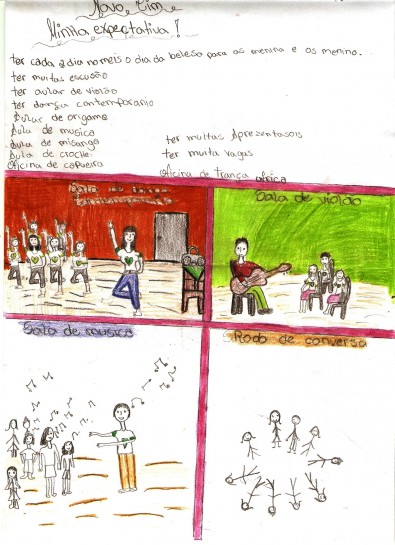 Novo Cim
Minha expectativa!
ter cada 2 dia no meis o dia da belesa para as menina e os menino.
ter muitas escusão
ter aular de violão
ter dança contemporanio
Aular de origame
Aula de musica
Aula de misanga
Aula de croche
Oficina de capueira
ter multas Apresentasois
ter muita vagas
Oficina de trança africa
Sala de
Sala de violão
Sala de musica
Roda de conversa